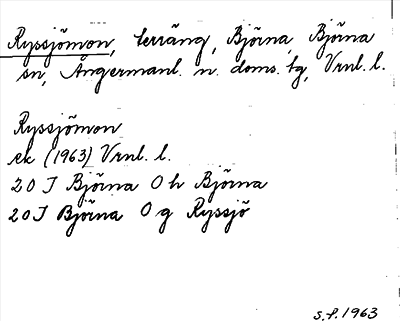 Ryssjömon, terräng, Björna, Björna
sn, Ångermanl. n. doms. tg, Vrnl. l.
Ryssjömon
ek (1963) Vrnl. l.
20 J Björna O h Björna
20 J Björna O g Ryssjö
s.f. 1963